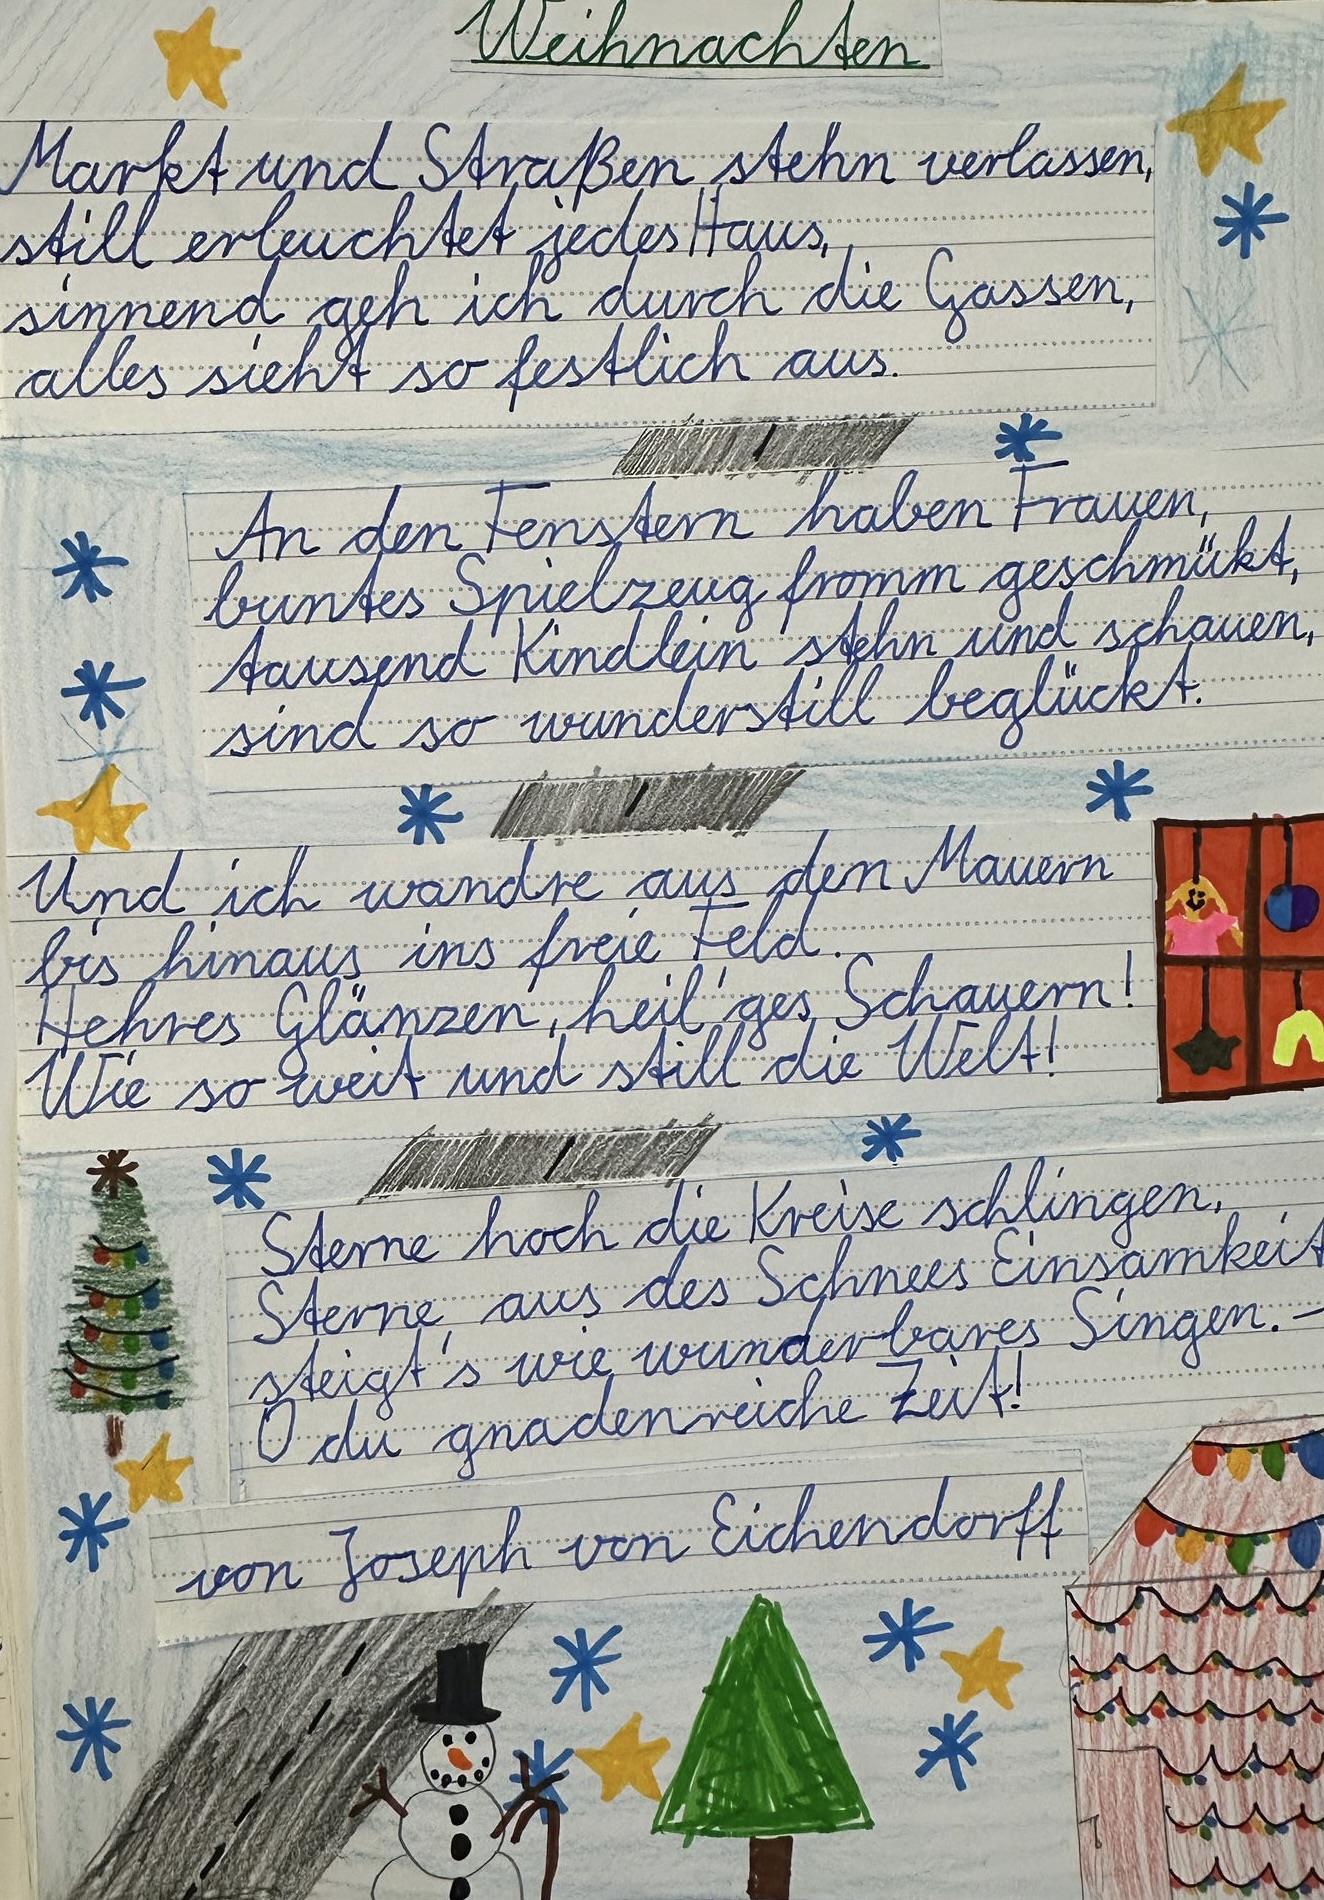 Weihnachten
Markt und Straßen stehn verlassen,
still erleuchtet jedes Haus,
sinnend geh ich durch die Gassen,
alles sieht so festlich aus.
An den Fenstern haben Frauen,
buntes Spielzeug fromm geschmükt,
tausend Kindlein stehn und schauen,
sind so wunderstill beglückt.
Und ich wandre aus den Mauern
bis hinaus ins freie Feld.
Hehres Glänzen, heil'ges Schauern!
Wie so weit und still die Welt!
Sterne hoch die Kreise schlingen,
Sterne aus des Schnees Einsamkeit
steigt's wie wunderbares Singen. –
O du gnadenreiche Zeit!
von Joseph von Eichendorff